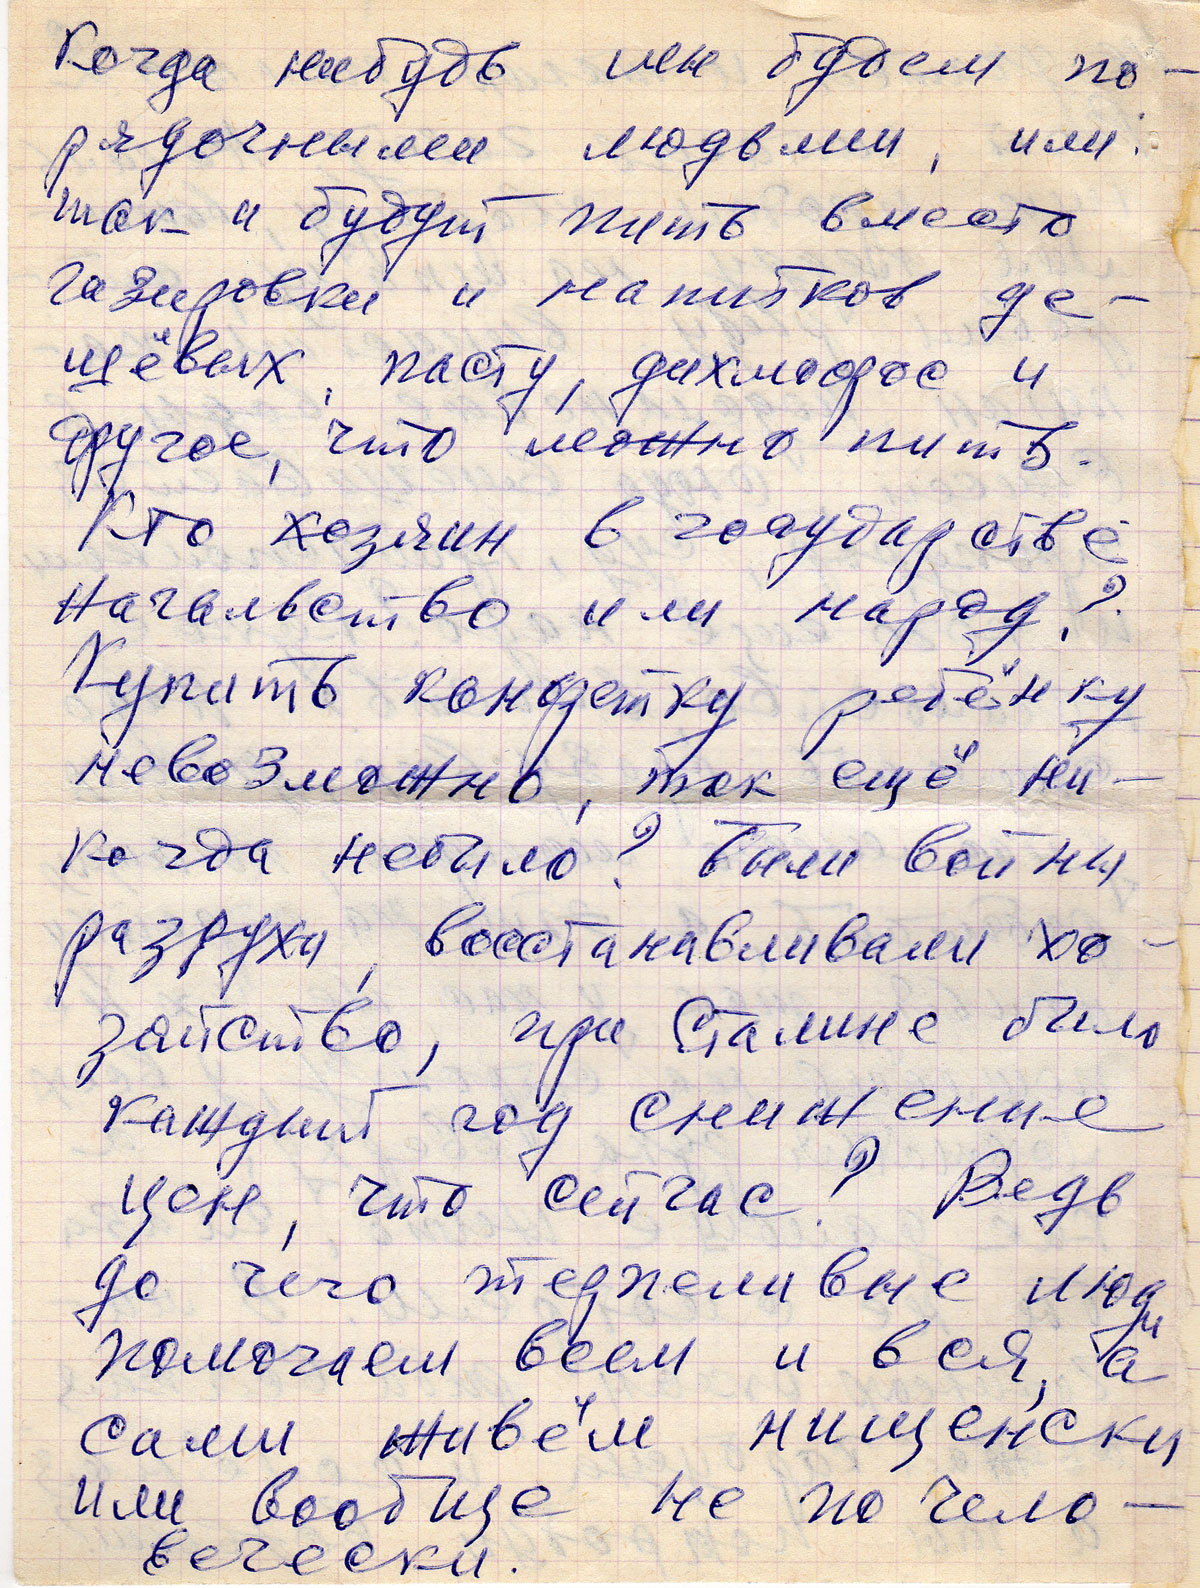 Когда нибудь мы будем по-
рядочными людьми, или
так и будут пить вместо
газировки и напитков де-
щёвых, пасту, дихлофос и
другое, что можно пить.
Кто хозяин в государстве
начальство или народ?
Купить конфетку ребёнку
невозможно, так ещё ни-
когда небыло? Были войны
разруха, восстанавливали хо-
зяйство, при Сталине было
каждый год снижение
цен, что сейчас? Ведь
до чего терпеливые люди
помогаем всем и вся, а
сами живём нищенски
или вообще не по чело-
вечески.